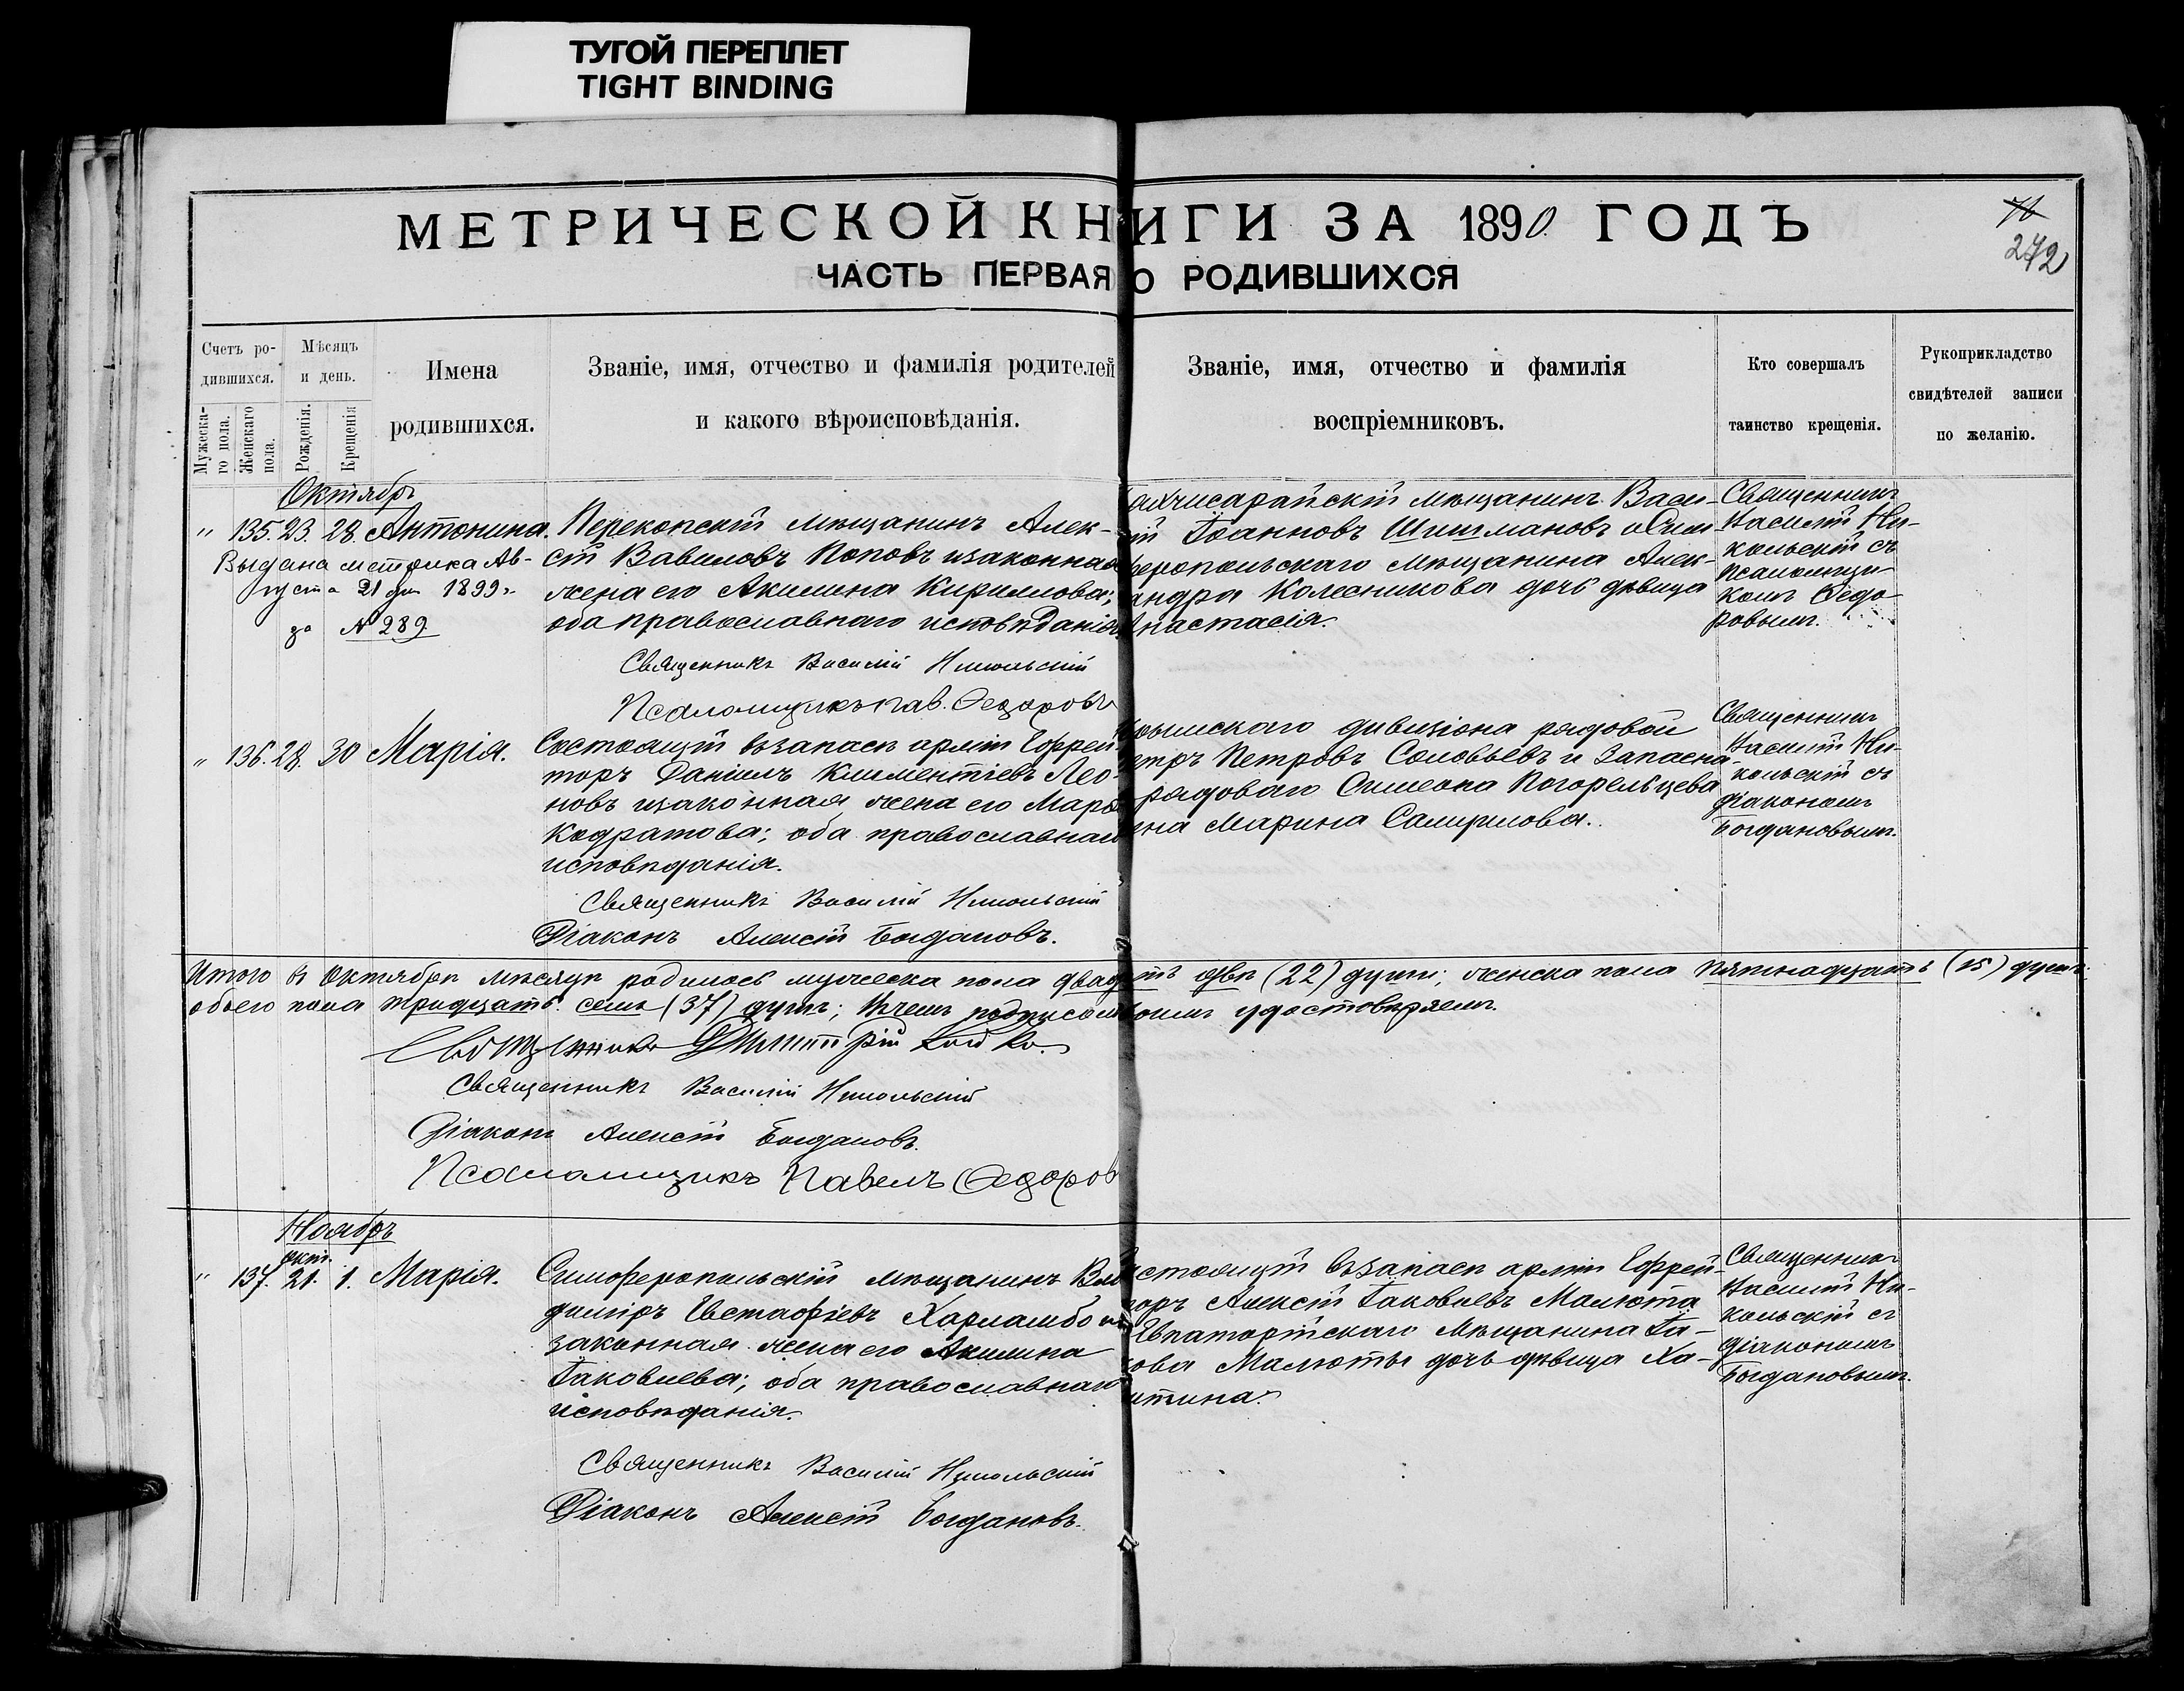 ТУГОЙ ПЕРЕПЛЕТ
TIGHT BINDING
МЕТРИЧЕСКОЙ КНИГИ ЗА 1890 ГОДЪ
272
ЧАСТЬ ПЕРВАЯ О РОДИВШИХСЯ
Счетъ ро-
дившихся.
Мужеска-
го пола.
Женскаго
пола.
Мѣсяцъ
и день.
Рожденія.
Крещенія
Имена
родившихся.
Званіе, имя, отчество и фамилія родителей
и какого вѣроисповѣданія.
Званіе, имя, отчество и фамилія
воспріемниковъ.
Кто совершалъ
таинство крещенія.
Рукоприкладство
свидѣтелей записи
по желанію.
Октябрь
" 135. 23. 28. Антонина.
Выдана метрика Ав-
густа 21 дня 1899 г.
за № 289.
Перекопскій мѣщанинъ Алек-
сій Вавиловъ Поповъ и законная
жена его Акилина Кириллова;
оба православнаго исповѣданія
Священникъ Василій Никольскій
Псаломщикъ Пав. Ѳедоровъ
ахчисарайскій мѣщанинъ Васи-
ій Іоанновъ Шишмановъ и Сим-
еропольскаго мѣщанина Алек-
андра Колесникова дочь дѣвица
Анастасія.
Священникъ
Василій Ни-
кольскій съ
псаломщи-
комъ Ѳедо-
ровымъ.
" 136. 28. 30 Марія.
Состоящій въ запасѣ арміи Ефрей-
торъ Даніилъ Климентіевъ Лео-
новъ и законная жена его Марѳа
Кодратова; оба православнаго
исповѣданія.
Священникъ Василій Никольскій
Діаконъ Алексій Богдановъ.
Крымскаго дивизіона рядовой
етръ Петровъ Соловьевъ и запасна-
рядоваго Симеона Погорельцева
ена Марина
Священникъ
Василій Ни-
кольскій съ
діакономъ
Богдановымъ.
Итого въ Октябрѣ мѣсяцѣ родилось мужеска пола двадцать двѣ (22) души; женска пола пятнадцать (15) душъ;
обоего пола тридцать семь (37) душъ; въ чемъ подписомъ своимъ удостовѣряемъ.
Священникъ Димитрій Койко.
Священникъ Василій Никольскій
Діаконъ Алексій Богдановъ.
Псаломщикъ Павелъ Ѳедоров
Ноябрь
окт.
" 137. 21. 1. Марія.
Симферопольскій мѣщанинъ Вла
диміръ Евстафіевъ Харламбо и
законная жена его Акилина
Іаковлева; оба православнаго
исповѣданія.
Священникъ Василій Никольскій
Діаконъ Алексій Богдановъ.
остоящій въ запасѣ арміи Ефрей-
торъ Алексій Іаковлевъ Малюта
и Евпаторійскаго мѣщанина Іа-
кова Малюты дочь дѣвица Ха-
итина.
Священникъ
Василій Ни-
кольскій съ
діакономъ
Богдановымъ.